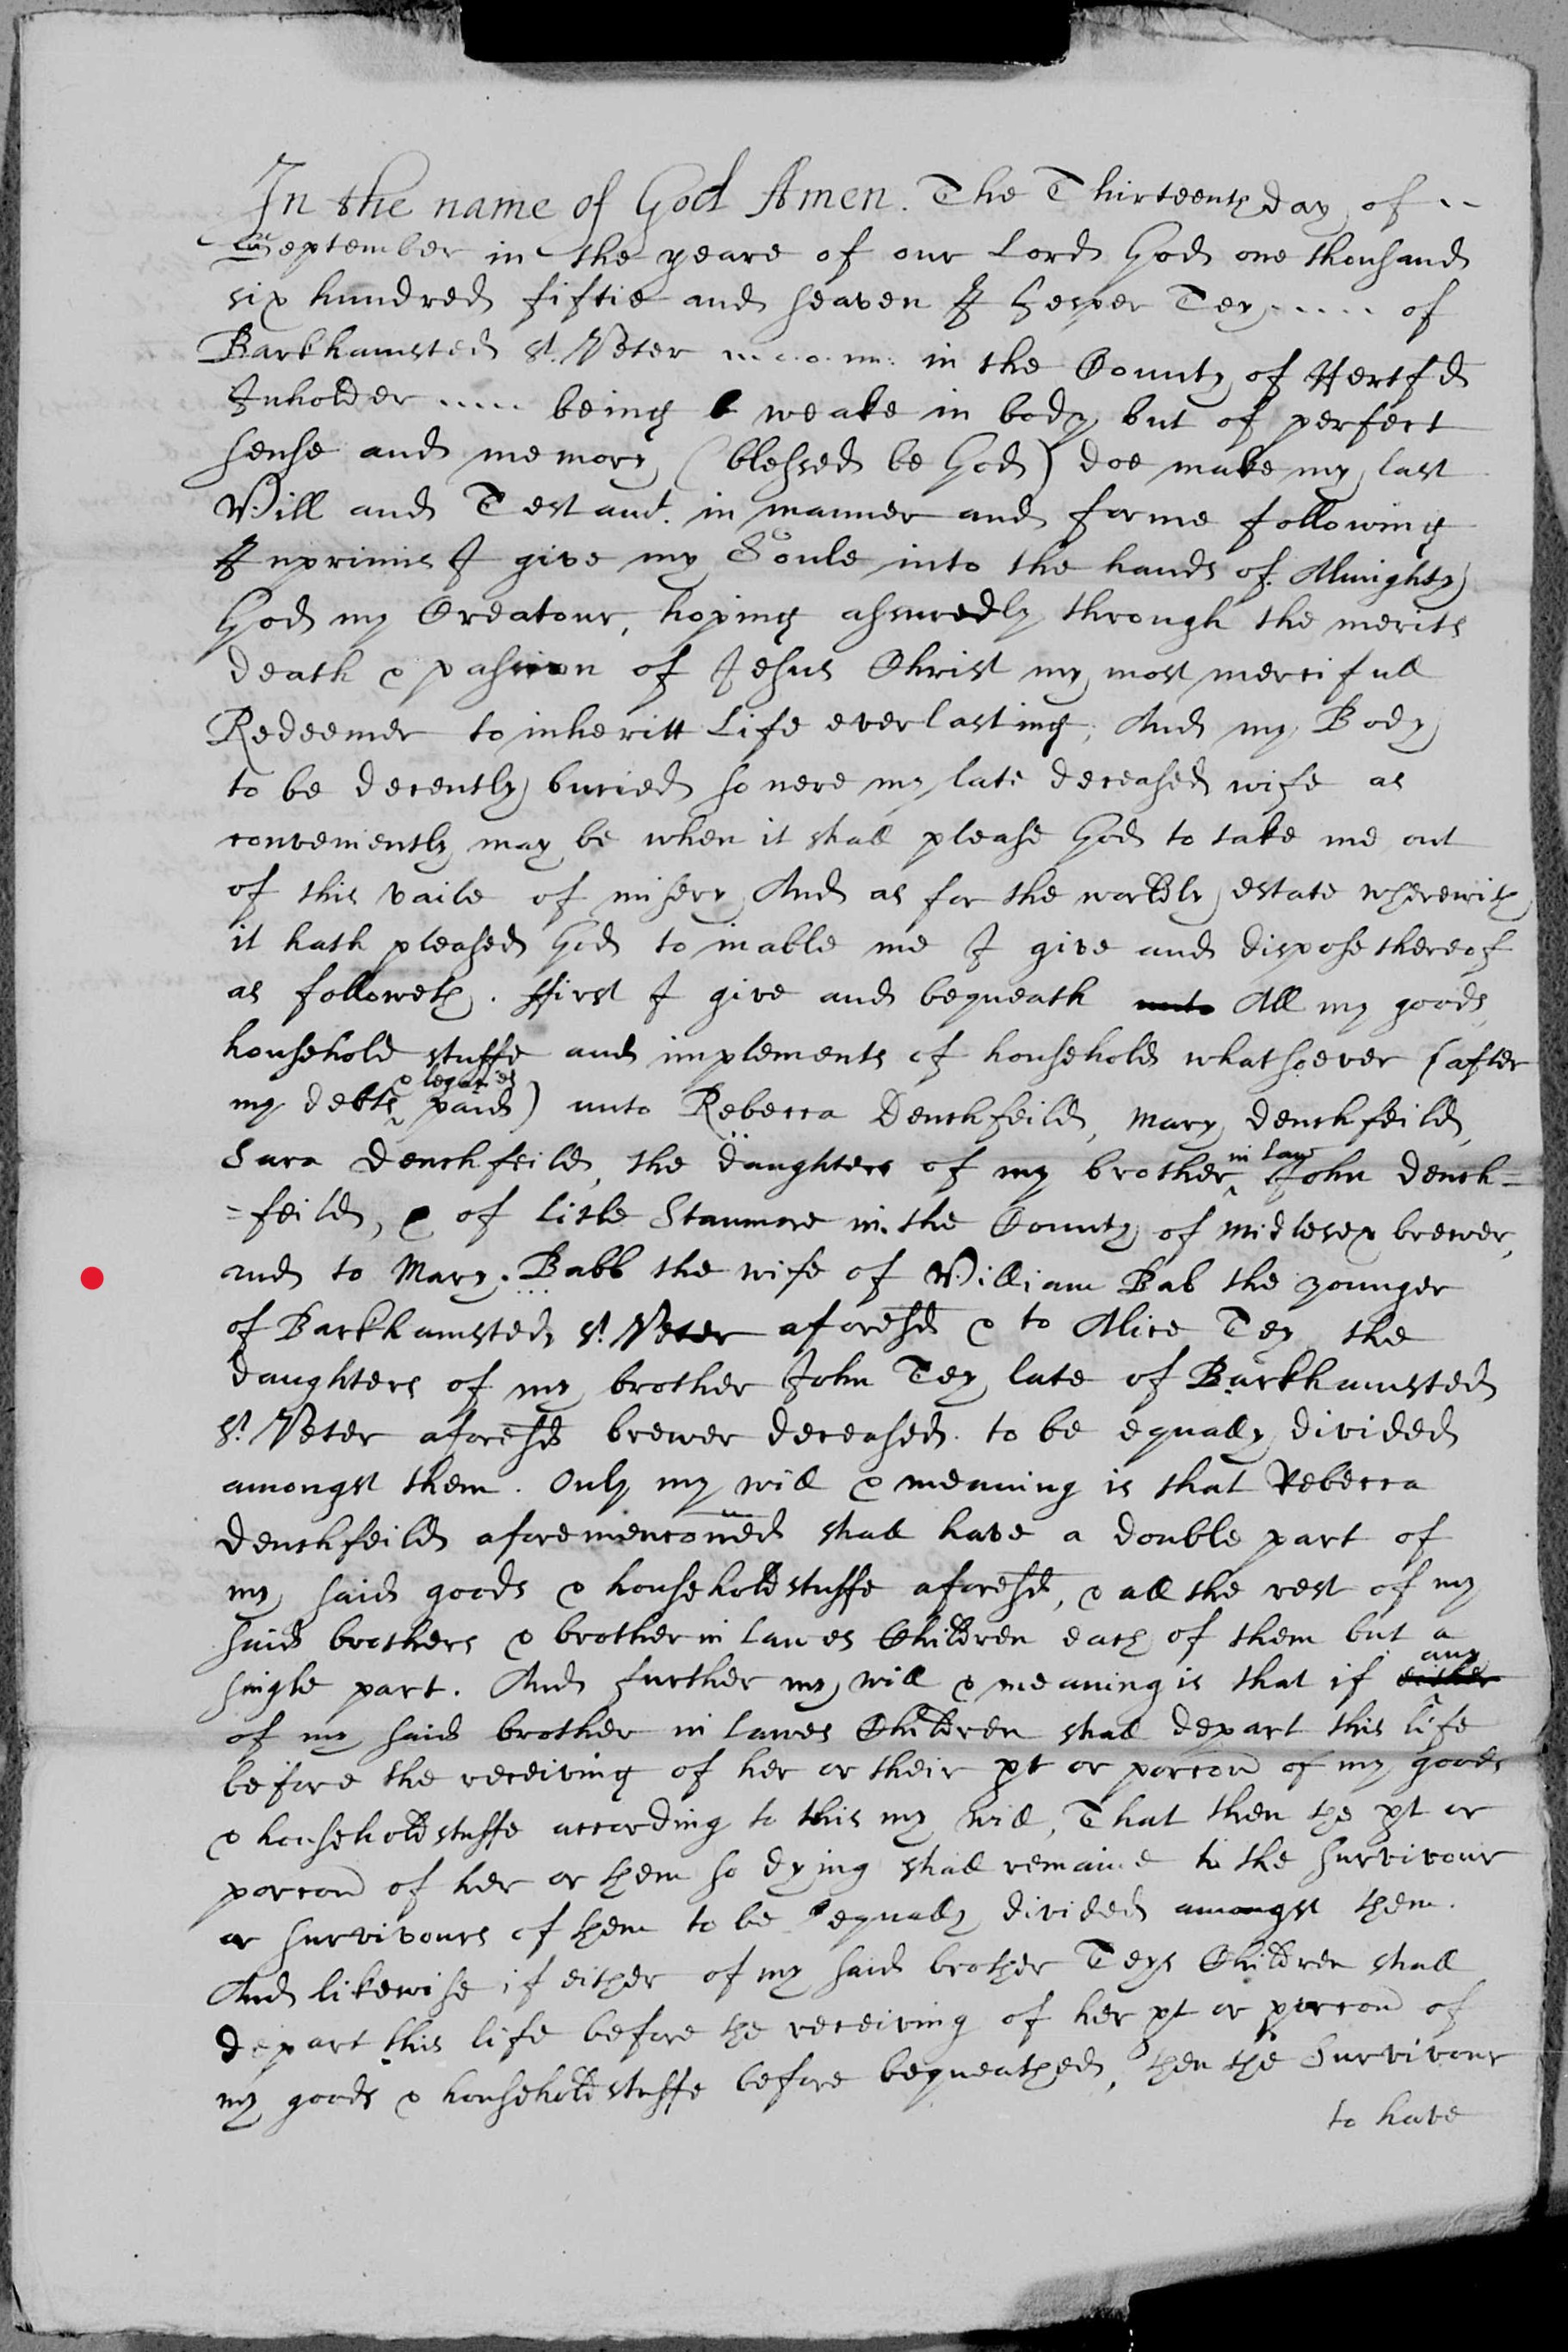 In the name of God Amen. The Thirteenth day of
September in the yeare of our Lord God one thousand
six hundred fiftie and seaven I Jesper Tey of
Barkhamsted St. Peter in the County of Hertfd
Inholder being weake in body but of perfect
sense and memory (blessed be God) doe make my last
Will and Testamt. in manner and forme following
Inprimis I give my Soule into the hands of Almighty
God my Creatour, hoping assuredly through the merits
death & passion of Jesus Christ my most mercifull
Redeemer to inheritt Life everlasting, And my Body
to be decently buried so nere my late deceased wife as
conveniently may be when it shall please God to take me out
of this vaile of misery And as for the worldly estate wherewith
it hath pleased God to inable me I give and dispose thereof
as followeth. ffirst I give and bequeath unto All my goods,
household stuffe and implements of household whatsoever (after
my debts & legacies paid) unto Rebecca Denchfeild, Mary Denchfeild,
Sara Denchfeild, the daughters of my brother in law John Dench=
=feild, of litle Stanmore in the County of Midlesex brewer,
and to Mary Babb the wife of William Bab the younger
of Barkhamsted St. Peter aforesd & to Alice Tey the
daughters of my brother John Tey late of Barkhamsted
St. Peter aforesd brewer deceased to be equally divided
amongst them. Only my will & meaning is that Rebecca
Denchfeild aforemenconed shall have a double part of
my said goods & householdstuffe aforesd, & all the rest of my
said brothers & brother in lawes Children each of them but a
single part. And further my will & meaning is that if either any
of my said brother in lawes Children shall depart this life
before the receiving of her or their pt or porcon of my goods
& householdstuffe according to this my will, That then the pt or
porcon of her or them so dying shall remaine to the survivour
or survivours of them to be equally divided amongst them.
And likewise if either of my said brother Teys Children shall
depart this life before the receiving of her pt or porcon of
my goods & householdstuffe before bequeathed, then the Survivour
to have